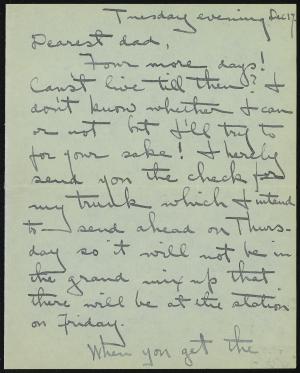 Tuesday evening Dec 17
Dearest dad,
Four more days!
Can't live till then? I
don't know whether I can
or not but I'll try to
for your sake! I hereby
send you the check for
my trunk which I intend
to — send ahead on Thurs-
day so it will not be in
the grand mix up that
there will be at the station
on Friday.
When you get the